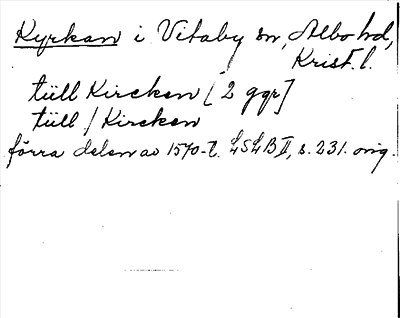 Kyrkan i Vitaby sn, Albo hd,
Krist. l.
tüll Kircken [2 ggr]
tüll / Kircken
förra delen av 1570-t. LSLB II, s. 231. orig.